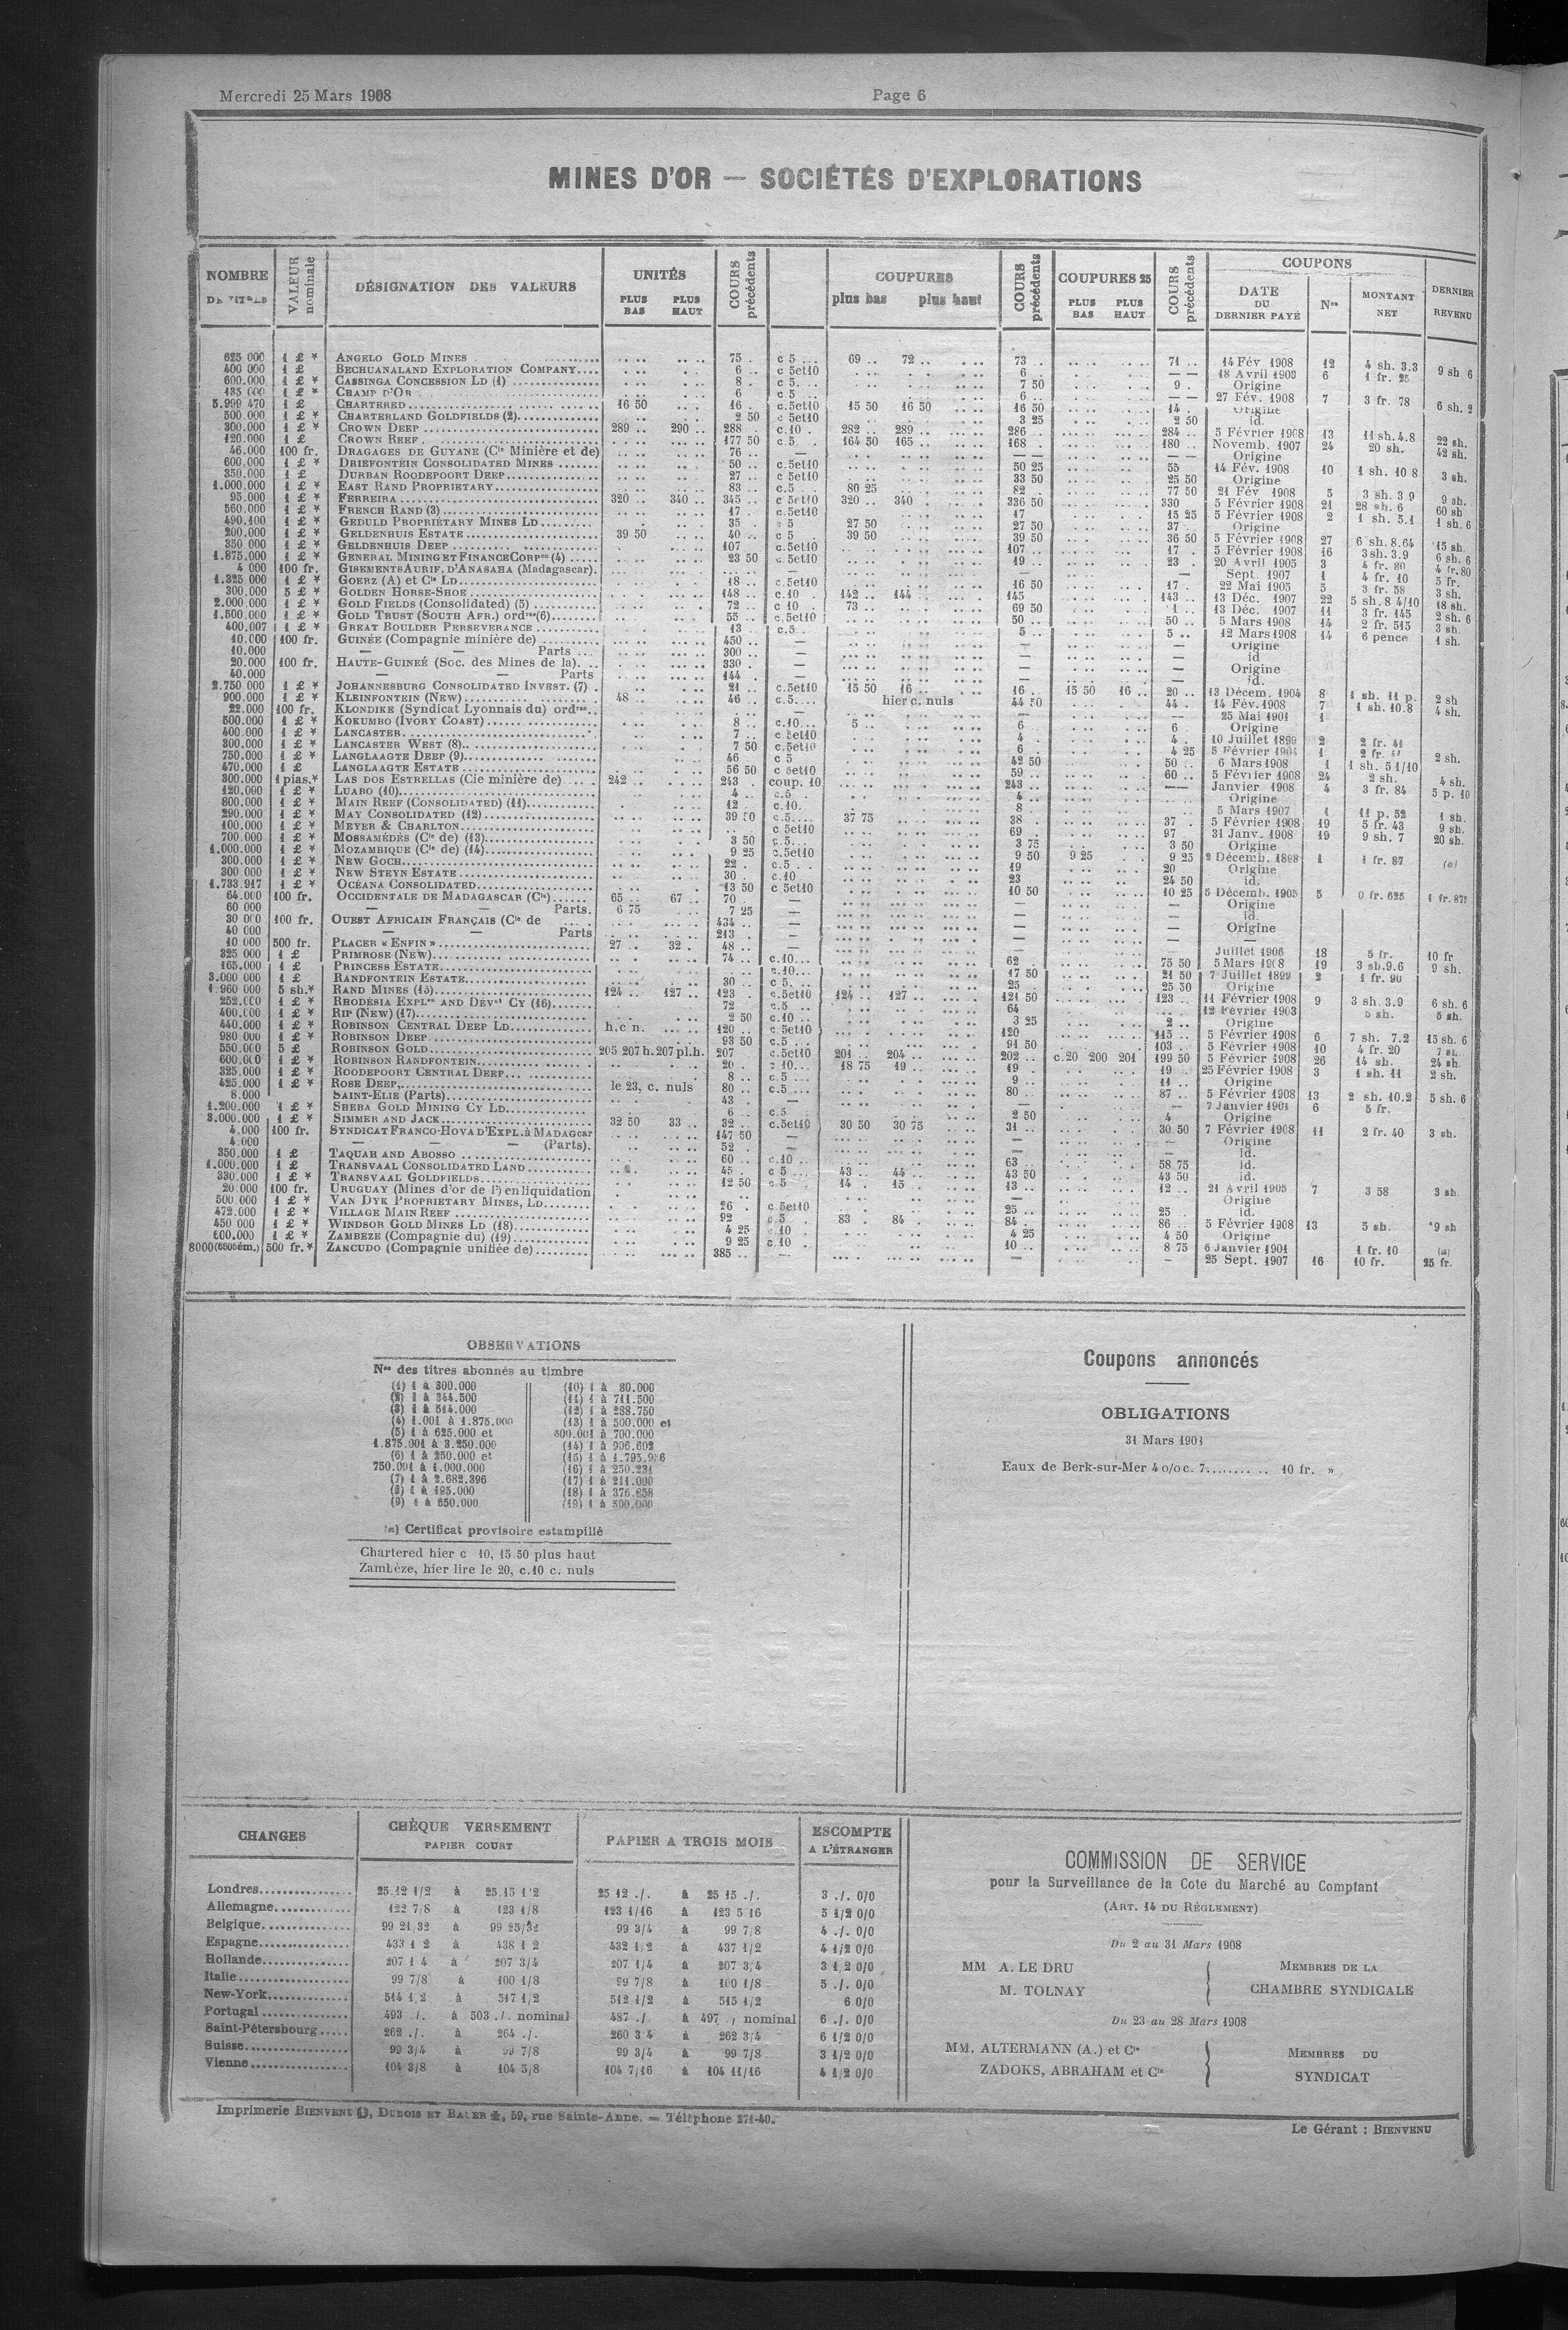 Mercredi 25 Mars 1908
Page 6
MINES D'OR — SOCIÉTÉS D'EXPLORATIONS
NOMBRE DE TITRES
VALEUR nominale
DÉSIGNATION DES VALEURS
UNITÉS
PLUS BAS PLUS HAUT
COURS précédents
COUPURES
plus bas plus haut
COURS précédents
COUPURES 25
PLUS BAS PLUS HAUT
COURS précédents
COUPONS
DATE DU DERNIER PAYÉ
Nos
MONTANT NET
DERNIER REVENU
625 000 1 £ * ANGELO GOLD MINES 75 . c 5 ... 69 .. 72 .. 73 .. 71 .. 14 Fév. 1908 12 4 sh. 3.3 9 sh 6
400 000 1 £ BECHUANALAND EXPLORATION COMPANY.... 6 .. c 5et10 6 . — — 18 Avril 1903 6 1 fr. 25
600.000 1 £ * CASSINGA CONCESSION LD (1) 8 . c 5.... 7 50 9 . Origine
135 000 1 £ * CHAMP D'OR 6 c 5 ... 6 .. — — 27 Fév. 1908 7 3 fr. 78 6 sh. 2
5.999 470 1 £ CHARTERED 16 50 16 . c.5et10 15 50 16 50 16 50 14 . Origine
500.000 1 £ * CHARTERLAND GOLDFIELDS (2) 2 50 c 5et10 3 25 2 50 id.
300.000 1 £ * CROWN DEEP 289 .. 290 .. 288 c.10 . 282 .. 289 .. 286 .. 284 .. 5 Février 1908 13 11 sh.4.8 22 sh.
120.000 1 £ CROWN REEF 177 50 c 5 . 164 50 165 .. 168 . 180 .. Novemb. 1907 24 20 sh. 42 sh.
46.000 100 fr. DRAGAGES DE GUYANE (Cie Minière et de) 76 .. — — — — — Origine
600,000 1 £ * DRIEFONTEIN CONSOLIDATED MINES 50 .. c.5et10 50 25 55 14 Fév. 1908 10 1 sh. 10 8 3 sh.
350.000 1 £ DURBAN ROODEPOORT DEEP 27 .. c 5et10 33 50 25 50 Origine
1.000.000 1 £ * EAST RAND PROPRIETARY 83 .. c.5 ... 80 25 82 .. 77 50 21 Fév 1908 5 3 sh. 3 9 9 sh.
95.000 1 £ * FERREIRA 320 .. 340 .. 345 .. c 5et10 320 .. 340 . 336 50 330 5 Février 1908 21 28 sh. 6 60 sh
560.000 1 £ * FRENCH RAND (3) 17 . c.5et10 17 15 25 5 Février 1908 2 1 sh. 5.1 1 sh. 6
490.400 1 £ * GEDULD PROPRIETARY MINES LD 35 . c 5 27 50 27 50 37 . Origine
200.000 1 £ * GELDENHUIS ESTATE 39 50 40 .. c 5 . 39 50 39 50 36 50 5 Février 1908 27 6 sh. 8.64 15 sh.
350 000 1 £ * GELDENHUIS DEEP 107 c.5et10 107 .. 17 . 5 Février 1908 16 3sh. 3.9 6 sh. 6
1.875.000 1 £ * GENERAL MINING ET FINANCE CORPon (4) 23 50 c.5et10 19 .. 23 . 20 Avril 1905 3 4 fr. 80 4 fr. 80
4 000 100 fr. GISEMENTS AURIF. D'ANASAHA (Madagascar). — — Sept. 1907 1 4 fr. 10 5 fr.
1.325 000 1 £ * GOERZ (A) et Cie LD 18 .. c.5et10 16 50 17 .. 22 Mai 1905 5 3 fr. 58 3 sh.
300.000 5 £ * GOLDEN HORSE-SHOE 148 .. c.10 . 142 .. 144 ... 145 143 .. 13 Déc. 1907 22 5 sh. 8 4/10 18 sh.
2.000.000 1 £ * GOLD FIELDS (Consolidated) (5) 72 .. c 10 . 73 .. 69 50 13 Déc. 1907 11 3 fr. 145 2 sh. 6
1.500.000 1 £ * GOLD TRUST (SOUTH AFR.) ordres(6) 55 .. c.5et10 50 .. 50 .. 5 Mars 1908 14 2 fr. 515 3 sh.
400,007 1 £ * GREAT BOULDER PERSEVERANCE 13 .. c.5.. 5 .. 5 .. 12 Mars 1908 14 6 pence 1 sh.
10.000 100 fr. GUINÉE (Compagnie minière de) 450 .. — — — Origine
10.000 — — Parts ... 300 .. — — — id
20.000 100 fr. HAUTE-GUINEÉ (Soc. des Mines de la). 330 . — — — Origine
40.000 — — Parts 144 . — — — id.
2.750.000 1 £ * JOHANNESBURG CONSOLIDATED INVEST. (7) 21 .. c.5et10 15 50 16 .. 16 .. 15 50 16 .. 20 .. 13 Décem. 1904 8 1 sh. 11 p. 2 sh
900.000 1 £ * KLEINFONTEIN (NEW) 48 .. 46 .. c.5.... hier c. nuls 44 50 44 . 14 Fév. 1908 7 1 sh. 10.8 4 sh.
22.000 100 fr. KLONDIKE (Syndicat Lyonnais du) ordres.. — — 25 Mai 1901 1
500.000 1 £ * KOKUMBO (IVORY COAST) 8 .. c.10... 5 .. 6 . 6 . Origine
400.000 1 £ * LANCASTER 7 .. c 5et10 4 4 . 10 Juillet 1899 2 2 fr. 41
300.000 1 £ * LANCASTER WEST (8) 7 50 c.5et10 6 4 25 5 Février 1904 1
750.000 1 £ * LANGLAAGTE DEEP (9) 46 c 5 42 50 50 .. 6 Mars 1908 1 1 sh. 5 1/10 2 sh.
470.000 1 £ LANGLAAGTE ESTATE 56 50 c 5et10 59 .. 60 .. 5 Février 1908 24 2 sh. 4 sh.
300.000 1 pias.* LAS DOS ESTRELLAS (Cie minière de) 242 .. 243 . coup. 10 243 .. — — Janvier 1908 4 3 fr. 84 5 p. 10
120.000 1 £ * LUABO (10) 4 . c.5 . 4 .. Origine
800.000 1 £ * MAIN REEF (CONSOLIDATED) (11) 12 .. c.10. 8 5 Mars 1907 1 11 p. 52 1 sh.
290.000 1 £ * MAY CONSOLIDATED (12) 39 50 c.5.... 37 75 38 . 37 . 5 Février 1908 19 5 fr. 43 9 sh.
100.000 1 £ * MEYER & CHARLTON c 5et10 69 . 97 31 Janv. 1908 19 9 sh. 7 20 sh.
700.000 1 £ * MOSSAMÉDÈS (Cie de) (13) 3 50 c.5... 3 75 3 50 Origine
1.000.000 1 £ * MOZAMBIQUE (Cie de) (14) 9 25 c.5et10 9 50 9 25 9 25 2 Décemb. 1898 1 1 fr. 87 (a)
300.000 1 £ * NEW GOCH 22 . c.5 . . 19 20 Origine
300 000 1 £ * NEW STEYN ESTATE 30 . c.10 23 24 50 id.
1.733.917 1 £ * OCÉANA CONSOLIDATED 13 50 c 5et10 10 50 10 25 5 Décemb. 1905 5 0 fr. 625 1 fr. 875
64.000 100 fr. OCCIDENTALE DE MADAGASCAR (Cie) 65 .. 67 .. 70 . — — — Origine
60 000 — — Parts. 6 75 7 25 — — — id.
30 000 100 fr. OUEST AFRICAIN FRANÇAIS (Cie de 434 .. — — — Origine
40 000 — — Parts 213 . — — —
10 000 500 fr. PLACER « ENFIN » 27 .. 32 . 48 .. — — — —
325 000 1 £ PRIMROSE (NEW) 74 .. c.10... 62 . 75 50 Juillet 1906 18 5 fr. 10 fr
165.000 1 £ PRINCESS ESTATE c.10... 17 50 21 50 5 Mars 1908 19 3 sh.9.6 9 sh.
3.000 000 1 £ RANDFONTEIN ESTATE 30 .. c 5... 25 . 25 50 7 Juillet 1899 2 1 fr. 90
1 960 000 5 sh.* RAND MINES (15) 124 .. 127 .. 123 . c.5et10 124 .. 127 .. 121 50 123 .. 11 Février 1908 9 3 sh. 3.9 6 sh. 6
252.000 1 £ * RHODESIA EXPLon AND DEVnt CY (16) 72 c.5 .. 64 12 Février 1903 5 sh. 5 sh.
400.000 1 £ * RIP (NEW) (17) 2 50 c.10 .. 3 25 2 .. Origine
440.000 1 £ * ROBINSON CENTRAL DEEP LD h.c n. 120 .. c.5et10 120 115 .. 5 Février 1908 6 7 sh. 7.2 15 sh. 6
980 000 1 £ * ROBINSON DEEP 93 50 c.5 ... 91 50 103 . 5 Février 1908 10 4 fr. 20 7 sh.
550.000 5 £ ROBINSON GOLD 205 207 h.207 pl.h. 207 c.5et10 201 .. 204 .. 202 .. c.20 200 201 199 50 5 Février 1908 26 14 sh. 24 sh
600.000 1 £ * ROBINSON RANDFONTEIN 20 . c 10... 18 75 19 .. 19 . 19 . 25 Février 1908 3 1 sh. 11 2 sh.
325.000 1 £ * ROODEPOORT CENTRAL DEEP 8 .. c.5 ... 9 .. 11 .. Origine
425.000 1 £ * ROSE DEEP le 23, c. nuls 80 .. c.5 .... 80 87 .. 5 Février 1908 13 2 sh. 10.2 5 sh. 6
8.000 SAINT-ELIE (Parts) 43 .. — — — 7 Janvier 1901 6 5 fr.
1.200.000 1 £ * SHEBA GOLD MINING CY LD 6 .. c.5 2 50 4 Origine
3.000.000 1 £ * SIMMER AND JACK 32 50 33 .. 32 .. c.5et10 30 50 30 75 31 .. 30 50 7 Février 1908 11 2 fr. 40 3 sh.
4.000 100 fr. SYNDICAT FRANCO-HOVA D'EXPL. à MADAGcar 147 50 — — — Origine
4.000 — — — (Parts). 52 . — — — id.
350.000 1 £ TAQUAH AND ABOSSO 60 .. c.10 .. 63 .. 58 75 id.
1.000.000 1 £ TRANSVAAL CONSOLIDATED LAND 45 . c 5 ... 43 .. 44 .. 43 50 43 50 id.
330.000 1 £ * TRANSVAAL GOLDFIELDS 12 50 c 5 14 . 15 .. 13 .. 12 .. 21 Avril 1905 7 3 58 3 sh.
20.000 100 fr. URUGUAY (Mines d'or de l') en liquidation — Origine
500 000 1 £ * VAN DYK PROPRIETARY MINES, LD 26 . c.5et10 25 .. 25 . id.
472.000 1 £ * VILLAGE MAIN REEF 92 c.5 . 83 . 84 84 . 86 .. 5 Février 1908 13 5 sh. 9 sh
450 000 1 £ * WINDSOR GOLD MINES LD (18) 4 25 c.10 . 4 25 4 50 Origine
600.000 1 £ * ZAMBÈZE (Compagnie du) (19) 9 25 c.10 . 10 .. 8 75 6 Janvier 1901 1 fr. 10 (a)
8000(6505ém.) 500 fr.* ZANCUDO (Compagnie unifiée de) 385 .. — — — 25 Sept. 1907 16 10 fr. 25 fr.
OBSERVATIONS
Nos des titres abonnés au timbre
(1) 1 à 300.000
(2) 1 à 344.500
(3) 1 à 514.000
(4) 1.001 à 1.875.000
(5) 1 à 625.000 et
1.875.001 à 3.250.000
(6) 1 à 250.000 et
750.001 à 1.000.000
(7) 1 à 2.682.396
(8) 1 à 195.000
(9) 1 à 650.000
(10) 1 à 80.000
(11) 1 à 711.500
(12) 1 à 288.750
(13) 1 à 500.000 et
600.001 à 700.000
(14) 1 à 906.602
(15) 1 à
(16) 1 à 250.231
(17) 1 à 211.000
(18) 1 à 376.858
(19) 1 à 500.000
(a) Certificat provisoire estampillé
Chartered hier c 10, 15 50 plus haut
Zambèze, hier lire le 20, c.10 c. nuls
Coupons annoncés
OBLIGATIONS
31 Mars 1908
Eaux de Berk-sur-Mer 4 o/o c. 7.......... 10 fr. »
CHANGES
CHÈQUE VERSEMENT
PAPIER COURT
PAPIER A TROIS MOIS
ESCOMPTE A L'ÉTRANGER
Londres 25.12 1/2 à 25.15 1/2 25 12 ./. à 25 15 ./. 3 ./. 0/0
Allemagne 122 7/8 à 123 1/8 123 1/16 à 123 5 16 5 1/2 0/0
Belgique 99 21/32 à 99 25/32 99 3/4 à 99 7/8 4 ./. 0/0
Espagne 433 1 2 à 438 1 2 432 1/2 à 437 1/2 4 1/2 0/0
Hollande 207 1 4 à 207 3/4 207 1/4 à 207 3/4 3 1/2 0/0
Italie 99 7/8 à 100 1/8 99 7/8 à 100 1/8 5 ./. 0/0
New-York 514 1/2 à 517 1/2 512 1/2 à 515 1/2 6 0/0
Portugal 493 ./. à 503 ./. nominal 487 ./ à 497 , nominal 6 ./. 0/0
Saint-Pétersbourg 262 ./. à 264 ./. 260 3 4 à 262 3/4 6 1/2 0/0
Suisse 99 3/4 à 99 7/8 99 3/4 à 99 7/8 3 1/2 0/0
Vienne 104 3/8 à 104 5/8 104 7/16 à 104 11/16 4 1/2 0/0
COMMISSION DE SERVICE
pour la Surveillance de la Cote du Marché au Comptant
(ART. 14 DU RÈGLEMENT)
Du 2 au 31 Mars 1908
MM A. LE DRU
M. TOLNAY
MEMBRES DE LA
CHAMBRE SYNDICALE
Du 23 au 28 Mars 1908
MM. ALTERMANN (A.) et Cie
ZADOKS, ABRAHAM et Cie
MEMBRES DU
SYNDICAT
Imprimerie BIENVENU, DUBOIS ET BAUER, 59, rue Sainte-Anne. — Téléphone 271-40.
Le Gérant : BIENVENU